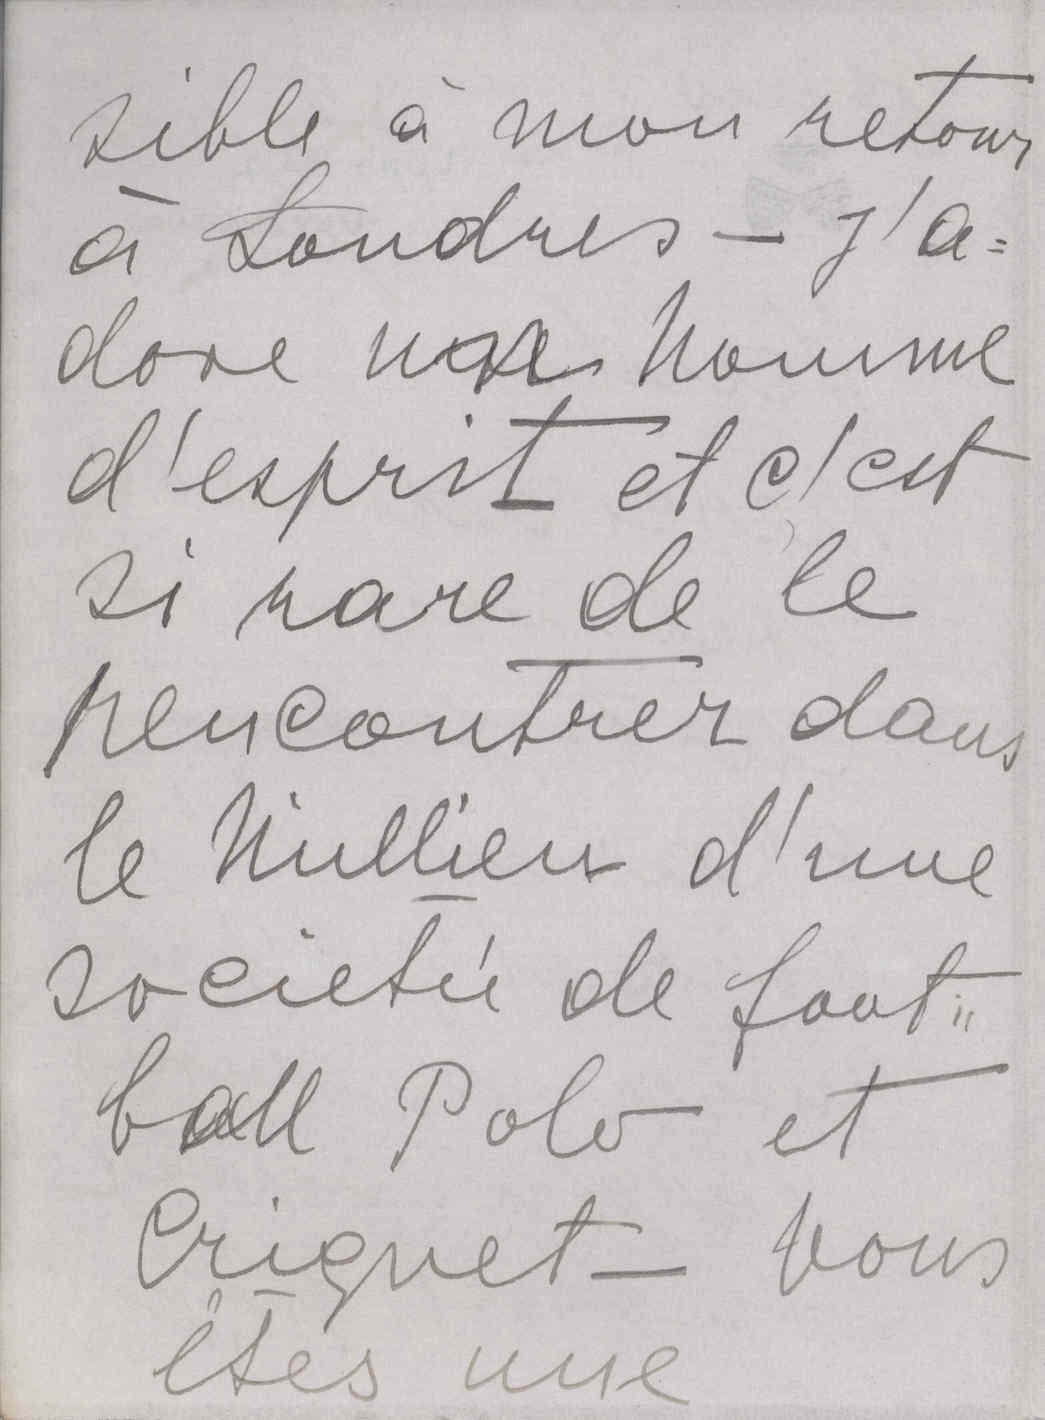 sible à mon retour
à Londres — j'a=
dore un homme
d'esprit et c'est
si rare de le
rencontrer dans
le Millieu d'une
societé de foot=
ball Polo et
Criquet — Vous
êtes une